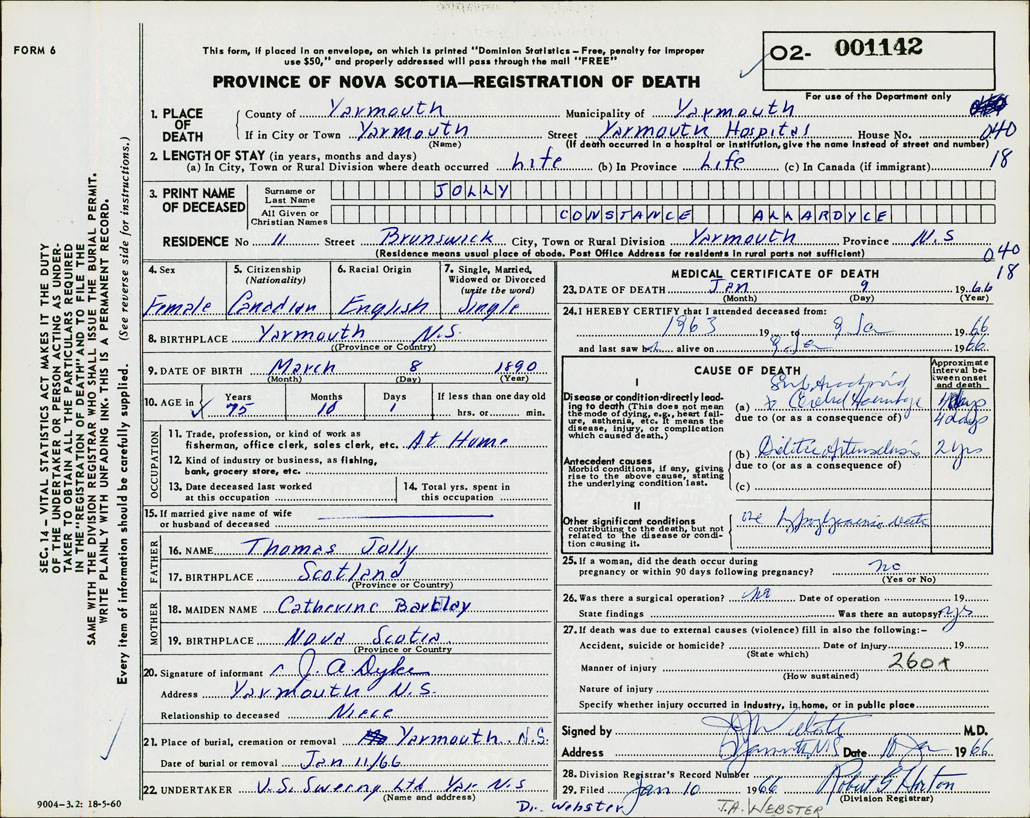 FORM 6
This form, if placed in an envelope, on which is printed "Dominion Statistics – Free, penalty for improper
use $50," and properly addressed will pass through the mail "FREE"
PROVINCE OF NOVA SCOTIA—REGISTRATION OF DEATH
02- 001142
For use of the Department only
1. PLACE OF DEATH
County of Yarmouth Municipality of Yarmouth
If in City or Town Yarmouth Street Yarmouth Hospital House No. 040
(Name) (If death occurred in a hospital or institution, give the name instead of street and number)
2. LENGTH OF STAY (in years, months and days) 18
(a) In City, Town or Rural Division where death occurred Life (b) In Province Life (c) In Canada (if immigrant)
3. PRINT NAME OF DECEASED
Surname or Last Name JOLLY
All Given or Christian Names CONSTANCE ALLARDYCE
RESIDENCE No 11 Street Brunswick City, Town or Rural Division Yarmouth Province N.S
(Residence means usual place of abode. Post Office Address for residents in rural parts not sufficient) 040
18
4. Sex Female
5. Citizenship (Nationality) Canadian
6. Racial Origin English
7. Single, Married, Widowed or Divorced (write the word) Single
8. BIRTHPLACE Yarmouth N.S.
(Province or Country)
9. DATE OF BIRTH March 8 1890
(Month) (Day) (Year)
10. AGE in Years 75 Months 10 Days 1 If less than one day old hrs. or min.
OCCUPATION
11. Trade, profession, or kind of work as
fisherman, office clerk, sales clerk, etc. At Home
12. Kind of industry or business, as fishing,
bank, grocery store, etc.
13. Date deceased last worked
at this occupation
14. Total yrs. spent in
this occupation
15. If married give name of wife
or husband of deceased
FATHER
16. NAME Thomas Jolly
17. BIRTHPLACE Scotland
(Province or Country)
MOTHER
18. MAIDEN NAME Catherine
19. BIRTHPLACE Nova Scotia
(Province or Country)
20. Signature of informant J. A. Dyke
Address Yarmouth N.S.
Relationship to deceased Niece
21. Place of burial, cremation or removal Yarmouth N.S.
Date of burial or removal Jan 11/66
22. UNDERTAKER V.S. Sweeny Ltd Yar N.S
(Name and address)
9004-3.2: 18-5-60
MEDICAL CERTIFICATE OF DEATH
23. DATE OF DEATH Jan 9 1966
(Month) (Day) (Year)
24. I HEREBY CERTIFY that I attended deceased from:
1963 19 to 9 Ja 1966
and last saw alive on 9 Ja 1966
CAUSE OF DEATH
Approximate interval between onset and death
I
Disease or condition directly leading to death (This does not mean the mode of dying, e.g., heart failure, asthenia, etc. It means the disease, injury, or complication which caused death.)
(a)
due to (or as a consequence of) 4 days
Antecedent causes
Morbid conditions, if any, giving rise to the above cause, stating the underlying condition last.
(b) 2 yrs
due to (or as a consequence of)
(c)
II
Other significant conditions
contributing to the death, but not related to the disease or condition causing it.
25. If a woman, did the death occur during
pregnancy or within 90 days following pregnancy? no
(Yes or No)
26. Was there a surgical operation? no Date of operation 19
State findings Was there an autopsy? yes
27. If death was due to external causes (violence) fill in also the following:–
Accident, suicide or homicide? Date of injury 19
(State which)
Manner of injury 260x
(How sustained)
Nature of injury
Specify whether injury occurred in industry, in home, or in public place
Signed by M.D.
Address Yarmouth N.S Date 10 Ja 1966
28. Division Registrar's Record Number
29. Filed Jan 10 1966 Robert G Horton
(Division Registrar)
Dr. Webster
J.A. WEBSTER
SEC. 14 – VITAL STATISTICS ACT MAKES IT THE DUTY
OF THE UNDERTAKER OR PERSON ACTING AS UNDER-
TAKER TO OBTAIN ALL THE PARTICULARS REQUIRED
IN THE "REGISTRATION OF DEATH" AND TO FILE THE
SAME WITH THE DIVISION REGISTRAR WHO SHALL ISSUE THE BURIAL PERMIT.
WRITE PLAINLY WITH UNFADING INK. THIS IS A PERMANENT RECORD.
Every item of information should be carefully supplied. (See reverse side for instructions.)